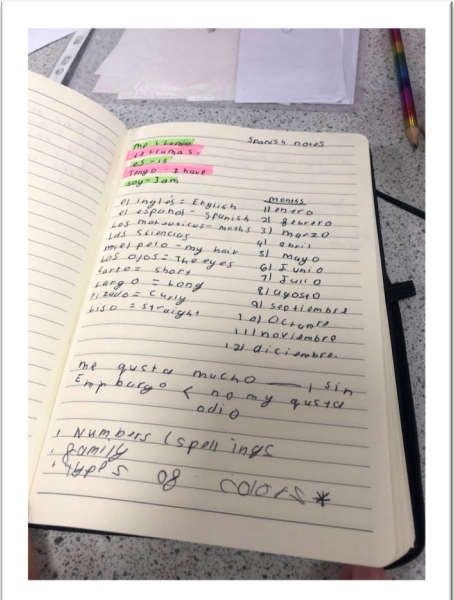 Spanish notes
me llamo
te llamas-
es - is
Tengo - I have
soy - I am
el inglés = English
el español - Spanish
Las matematicas = maths
Las sciencias
mi pelo - my hair
Los ojos = The eyes
corto = short
Largo = Long
rizado = Curly
Liso = straight
months
1) enero
2) febrero
3) marzo
4) abril
5) mayo
6) Junio
7) Julio
8) agosto
9) septiembre
10) Octubre
11) noviembre
12) diciembre.
me gusta mucho —, sin
Embargo < no my gusta
odio
Numbers (spellings
family
types of colors *